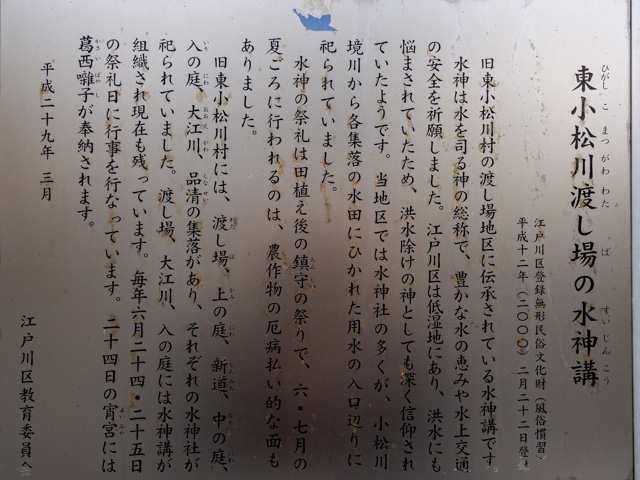 東小松川渡し場の水神講
ひがしこまつがわわたばすいじんこう
江戸川区登録無形民俗文化財（風俗慣習）
平成十二年（二〇〇〇）二月二十二日登録
旧東小松川村の渡し場地区に伝承されている水神講です。
水神は水を司る神の総称で、豊かな水の恵みや水上交通
の安全を祈願しました。江戸川区は低湿地にあり、洪水にも
悩まされていたため、洪水除けの神としても深く信仰され
ていたようです。当地区では水神社の多くが、小松川
境川から各集落の水田にひかれた用水の入口辺りに
祀られていました。
水神の祭礼は田植え後の鎮守の祭りで、六・七月の
夏ごろに行われるのは、農作物の厄病払い的な面も
ありました。
旧東小松川村には、渡し場、上の庭、新道、中の庭、
入の庭、大江川、品清の集落があり、それぞれの水神社が
祀られていました。渡し場、大江川、入の庭には水神講が
組織され現在も残っています。毎年六月二十四・二十五日
の祭礼日に行事を行なっています。二十四日の宵宮には
葛西囃子が奉納されます。
平成二十九年 三月
江戸川区教育委員会